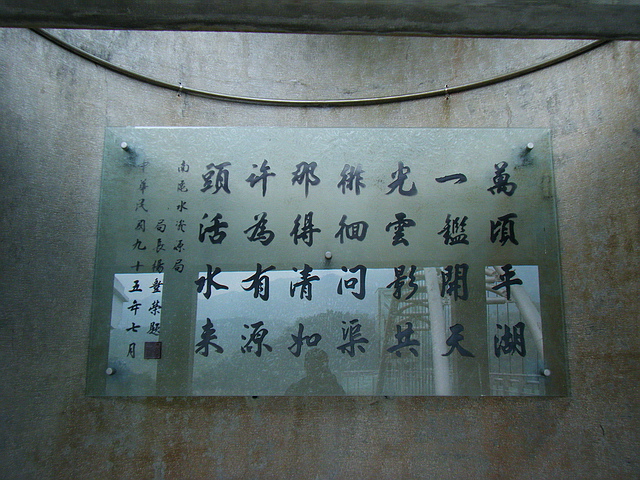 萬頃平湖
一鑑開天
光雲影共
徘徊問渠
那得清如
許為有源
頭活水来
南區水資源局
局長楊豊榮題
中華民國九十五年七月